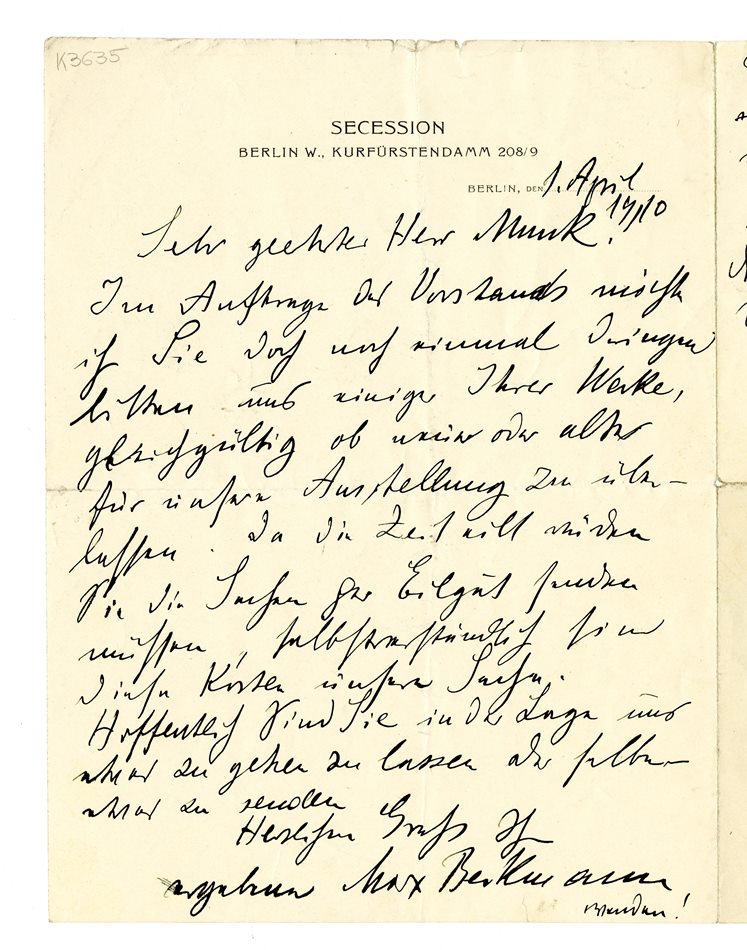 K3635
SECESSION
BERLIN W., KURFÜRSTENDAMM 208/9
BERLIN, DEN 1. April
1910
Sehr geehrter Herr Munk!
Im Auftrage des Vorstands möchte
ich Sie doch noch einmal dringend
bitten uns einige Ihrer Werke,
gleichgültig ob neuer oder alter
für unsere Ausstellung zu über-
lassen. Da die Zeit eilt würden
Sie die Sachen per Eilgut senden
müssen, selbstverständlich sind
diese Kosten unsere Sache.
Hoffentlich sind Sie in der Lage uns
etwas zu gehen zu lassen oder selber
etwas zu senden
Herzlichen Gruß Ihr
ergebener Max Beckmann
wenden!